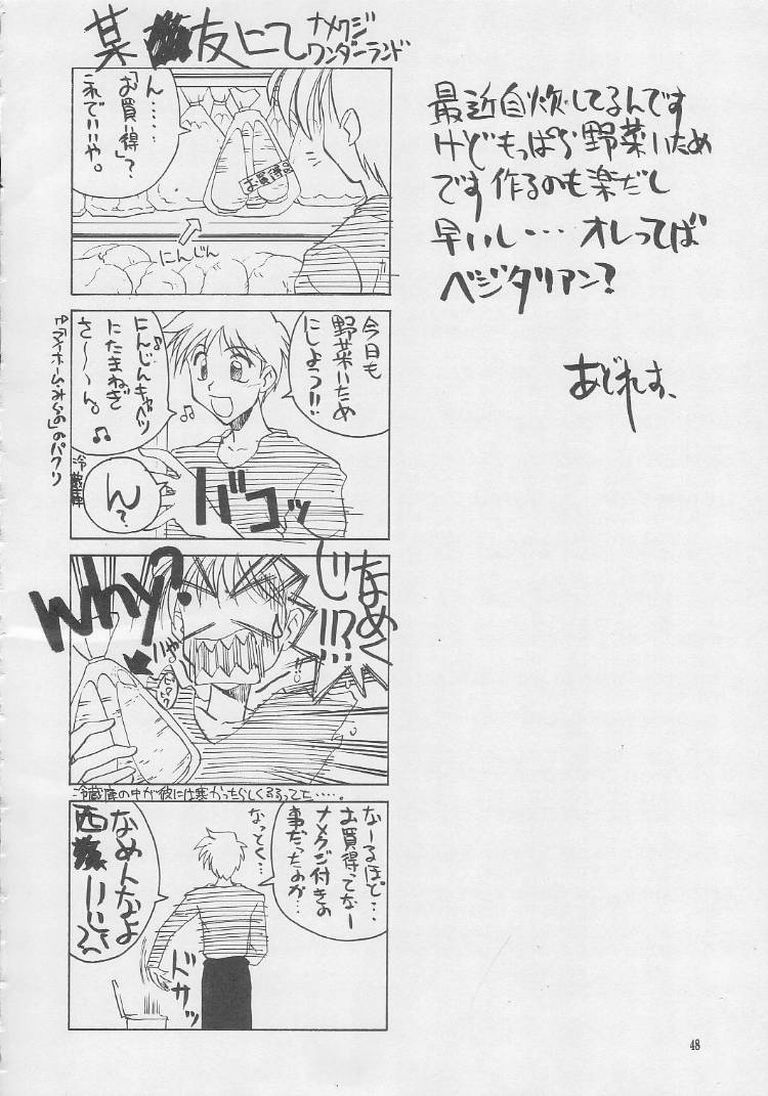 某
友にて
ナメクジ
ワンダーランド
ん……
「お買得」?
これでいいや。
お買得品
にんじん
今日も
野菜いため
にしよう!!
にんじんキャベツ
にたまねぎ
さ〜〜ん。
「マイホームみらの」のパクリ
冷蔵庫
ん?
バコッ
なめく
じ!!?
Why?
冷蔵庫の中が彼には寒かったらしくまるまってた……。
なーるほど…
お買得ってなー
ナメクジ付きの
事だったのか…
なっとく…
なめんなよ
西
ドサッ
最近自炊してるんです
けどもっぱら野菜いため
です作るのも楽だし
早いし…オレってば
ベジタリアン?
あどれす、
48